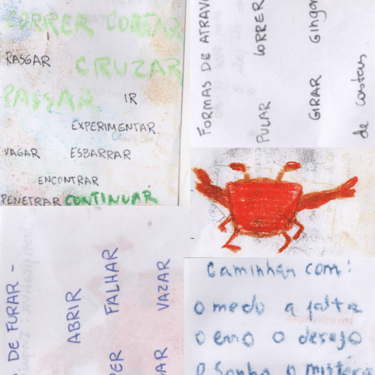 CORRER CORTAR
RASGAR
CRUZAR
PASSAR
IR
EXPERIMENTAR
VAGAR ESBARRAR
ENCONTRAR
PENETRAR CONTINUAR
FORMAS DE ATRAV
PULAR CORRER
GIRAR Gingar
de costas
DE FURAR -
ABRIR
FALHAR
VAZAR
Caminhar com:
o medo a falta
o erro o desejo
o sonho o mistério